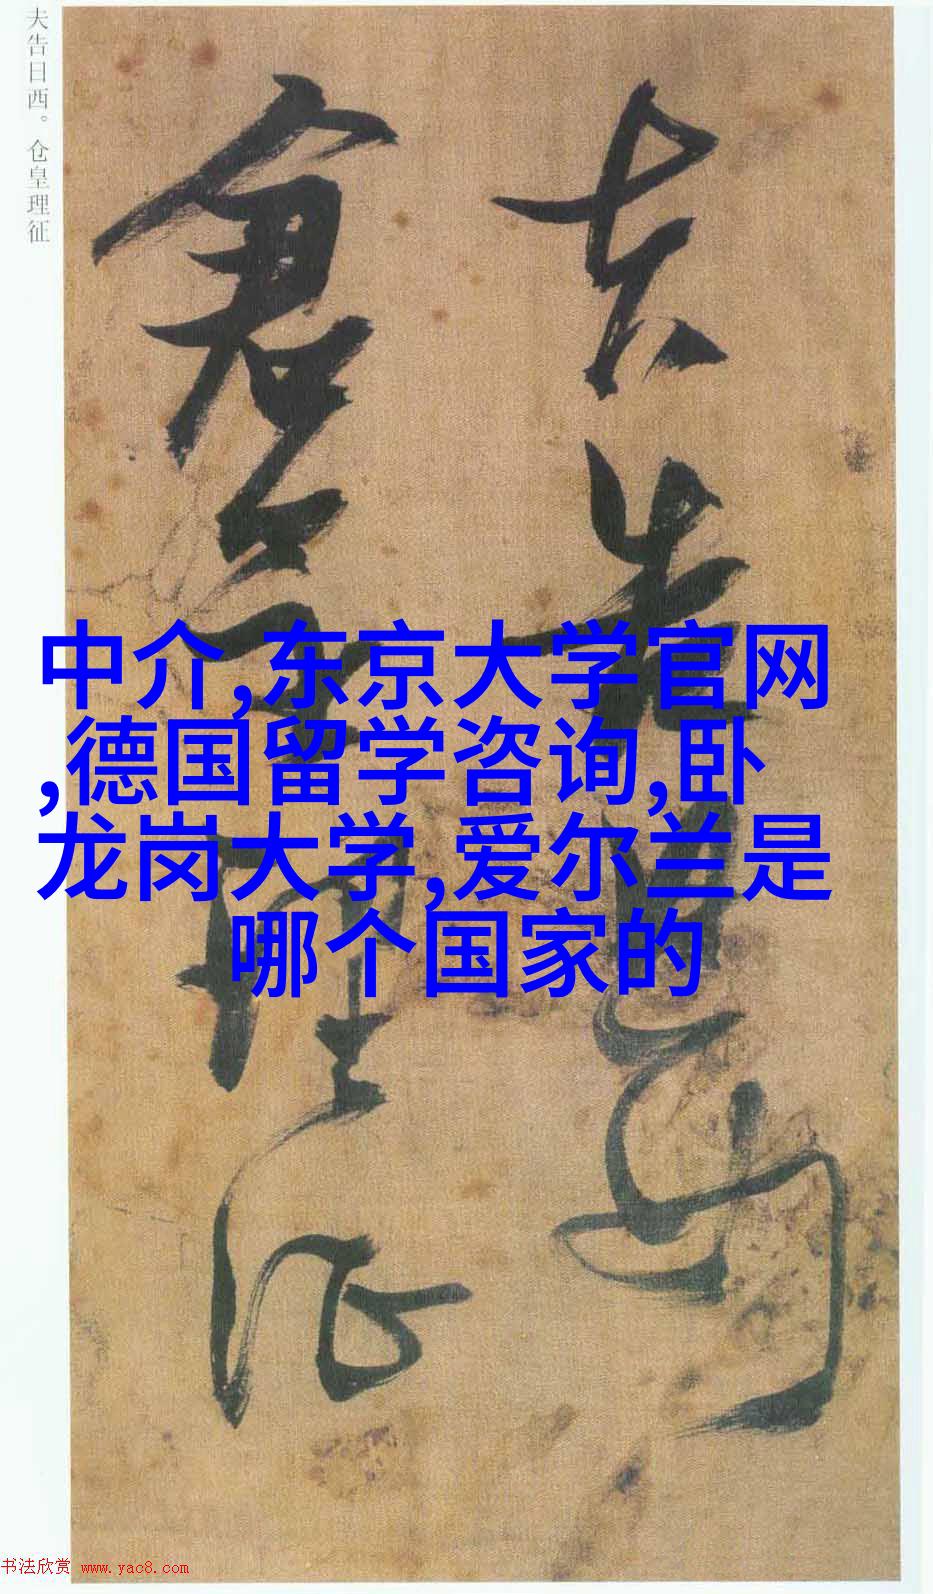 夫告日西。仓皇理征
夫告日西
倉皇理征
中介,东京大学官网
,德国留学咨询,卧
龙岗大学,爱尔兰是
哪个国家的
书法欣赏 www.yac8.com